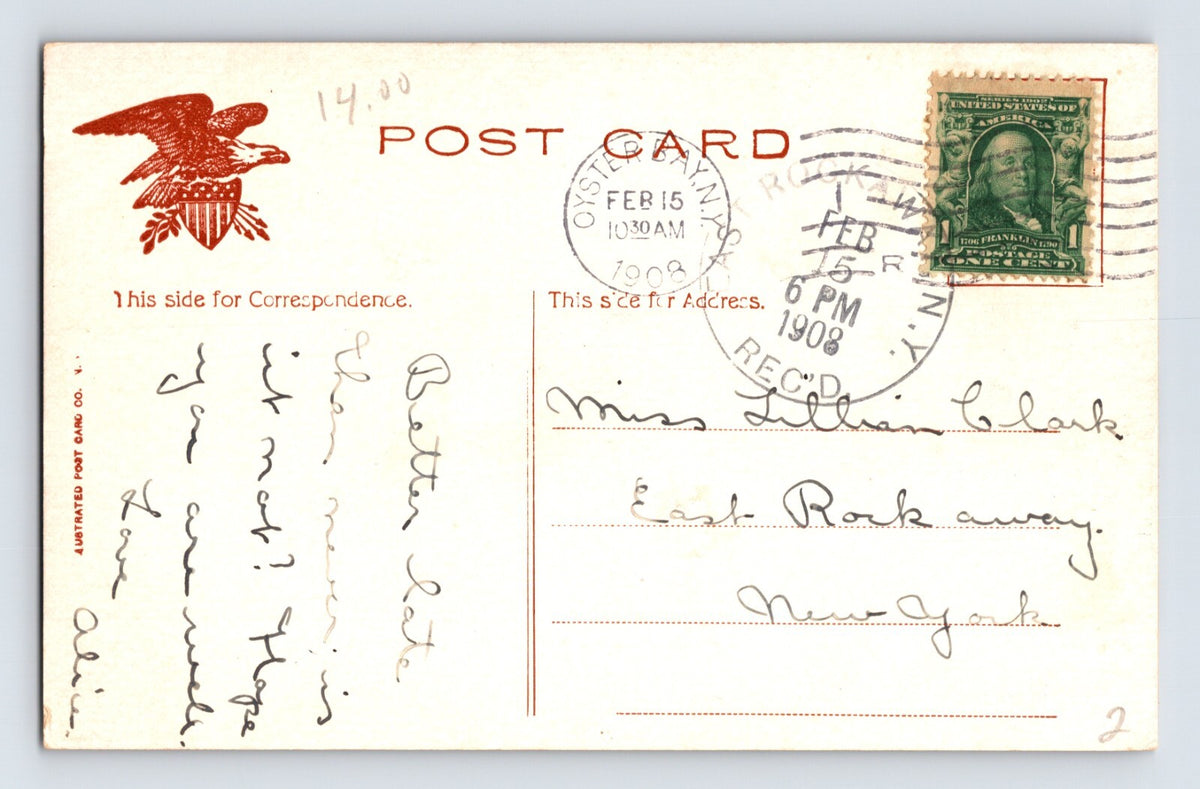 14.00
POST CARD
OYSTER BAY, N.Y.
FEB 15
10 30 AM
1908
EAST ROCKAWAY N.Y.
1
FEB
15
R
6 PM
1908
REC'D
SERIES 1902
UNITED STATES OF
AMERICA
1 1
1706 FRANKLIN 1790
POSTAGE
ONE CENT
This side for Correspondence.
This side for Address.
Better late
than never is
it not? Hope
you are well.
Love
Alice.
Miss Lillian Clark
East Rockaway.
New York
AUSTRATED POST CARD CO. N.
2